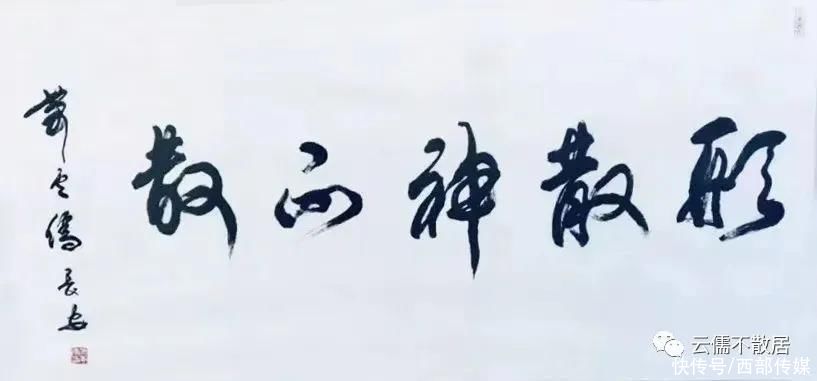 形散神不散
云儒長安
云儒不散居
快传号/西部传媒